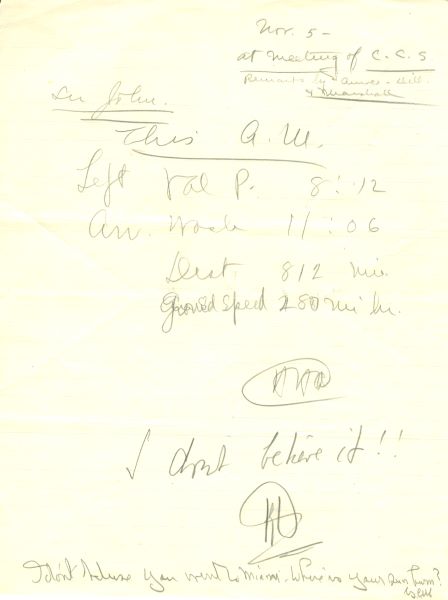 Nov. 5 -
at meeting of C.C.S
Remarks by
& Marshall
Sir John.
This A.M.
Left Val P. 8:12
Arr. Wash 11:06
Dist. 812 mi.
Ground Speed 280 mi hr.
HHA
I don't believe it!!
I don't believe you went to Miami. Where is your sun burn?